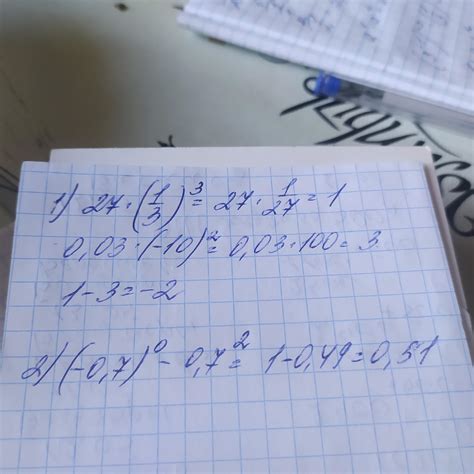 1) 27 · (1/3)³ = 27 · 1/27 = 1
0,03 · (-10)² = 0,03 · 100 = 3
1 - 3 = -2
2) (-0,7)⁰ - 0,7² = 1 - 0,49 = 0,51